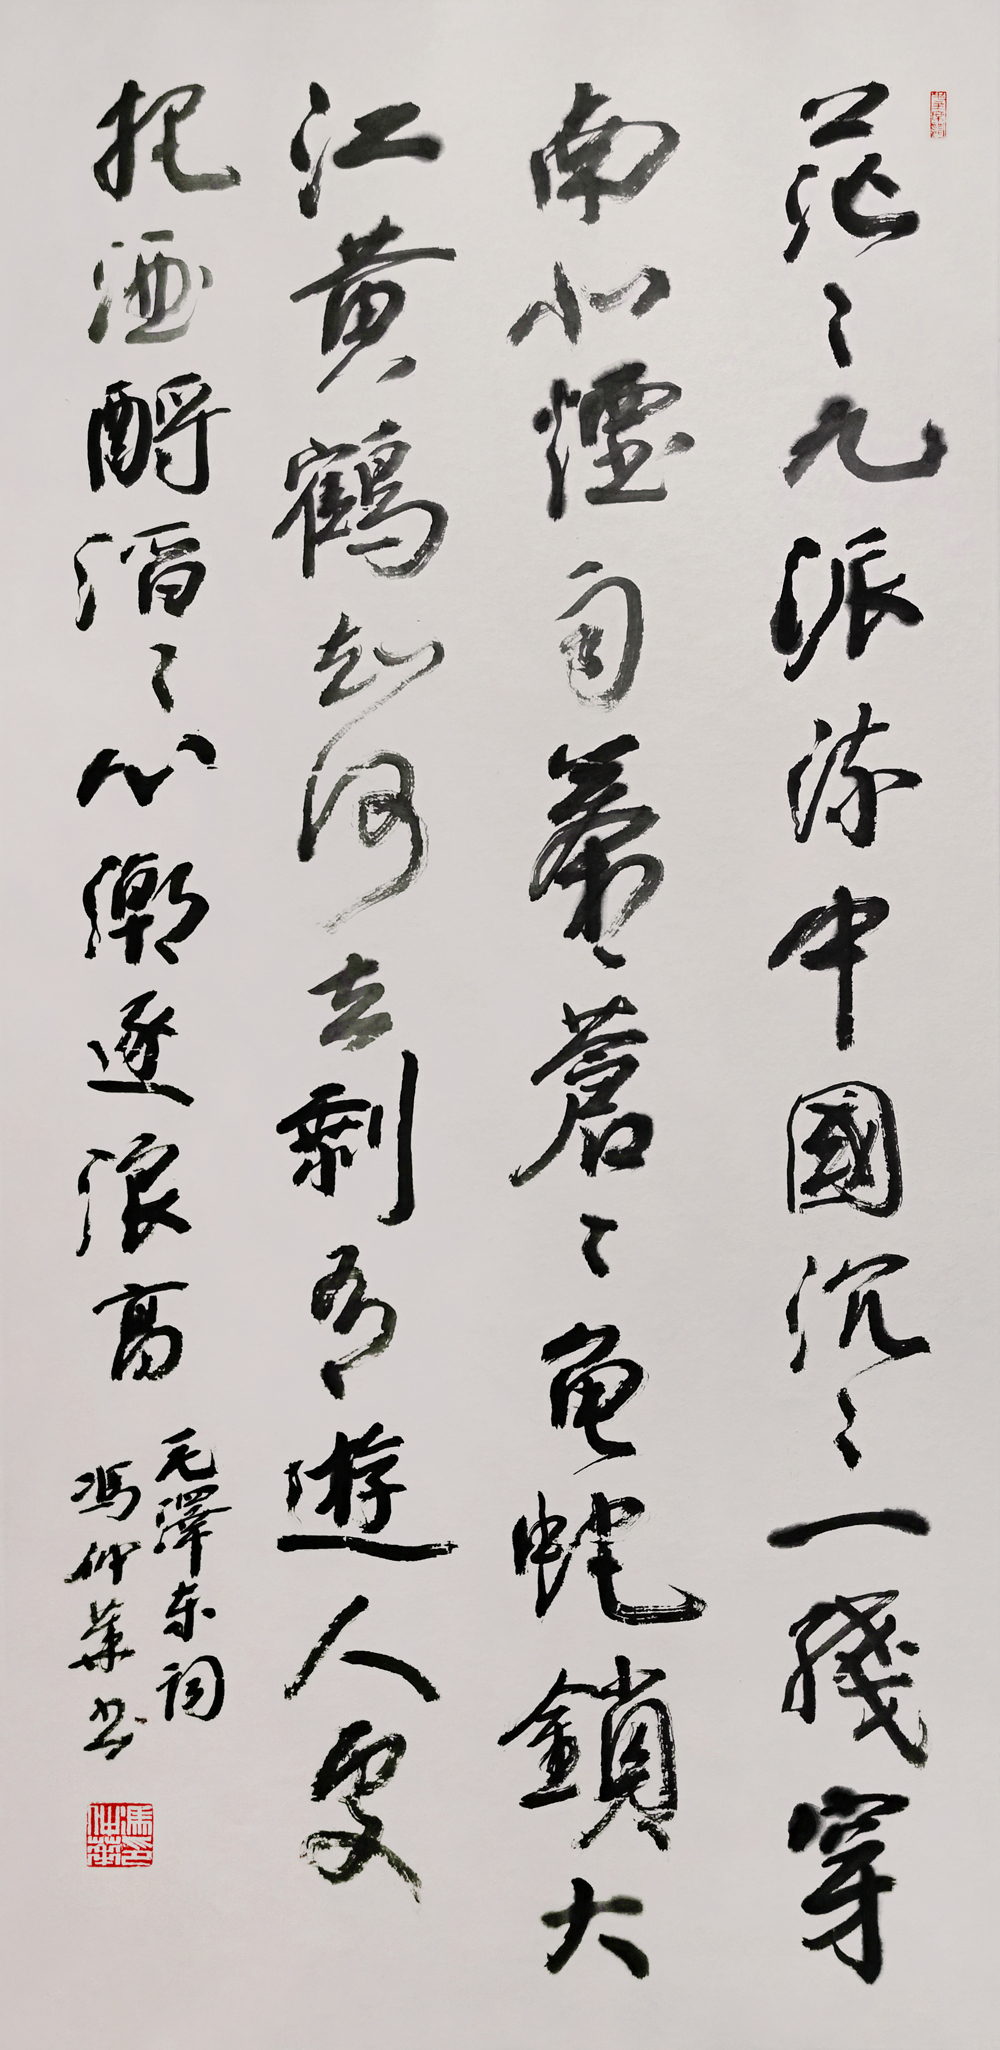 茫〻九派流中國沉〻一綫穿
南北煙雨莽蒼〻龟蛇鎖大
江黄鶴知何去剩有遊人處
把酒酹滔〻心潮逐浪高
毛澤东词
馮仲華书